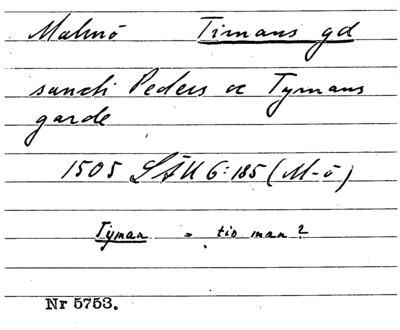 Malmö Timans gd
sancti Peders oc Tymans
garde
1505 LÄU 6:185 (M-ö)
Tyman = tio man?
Nr 5753.